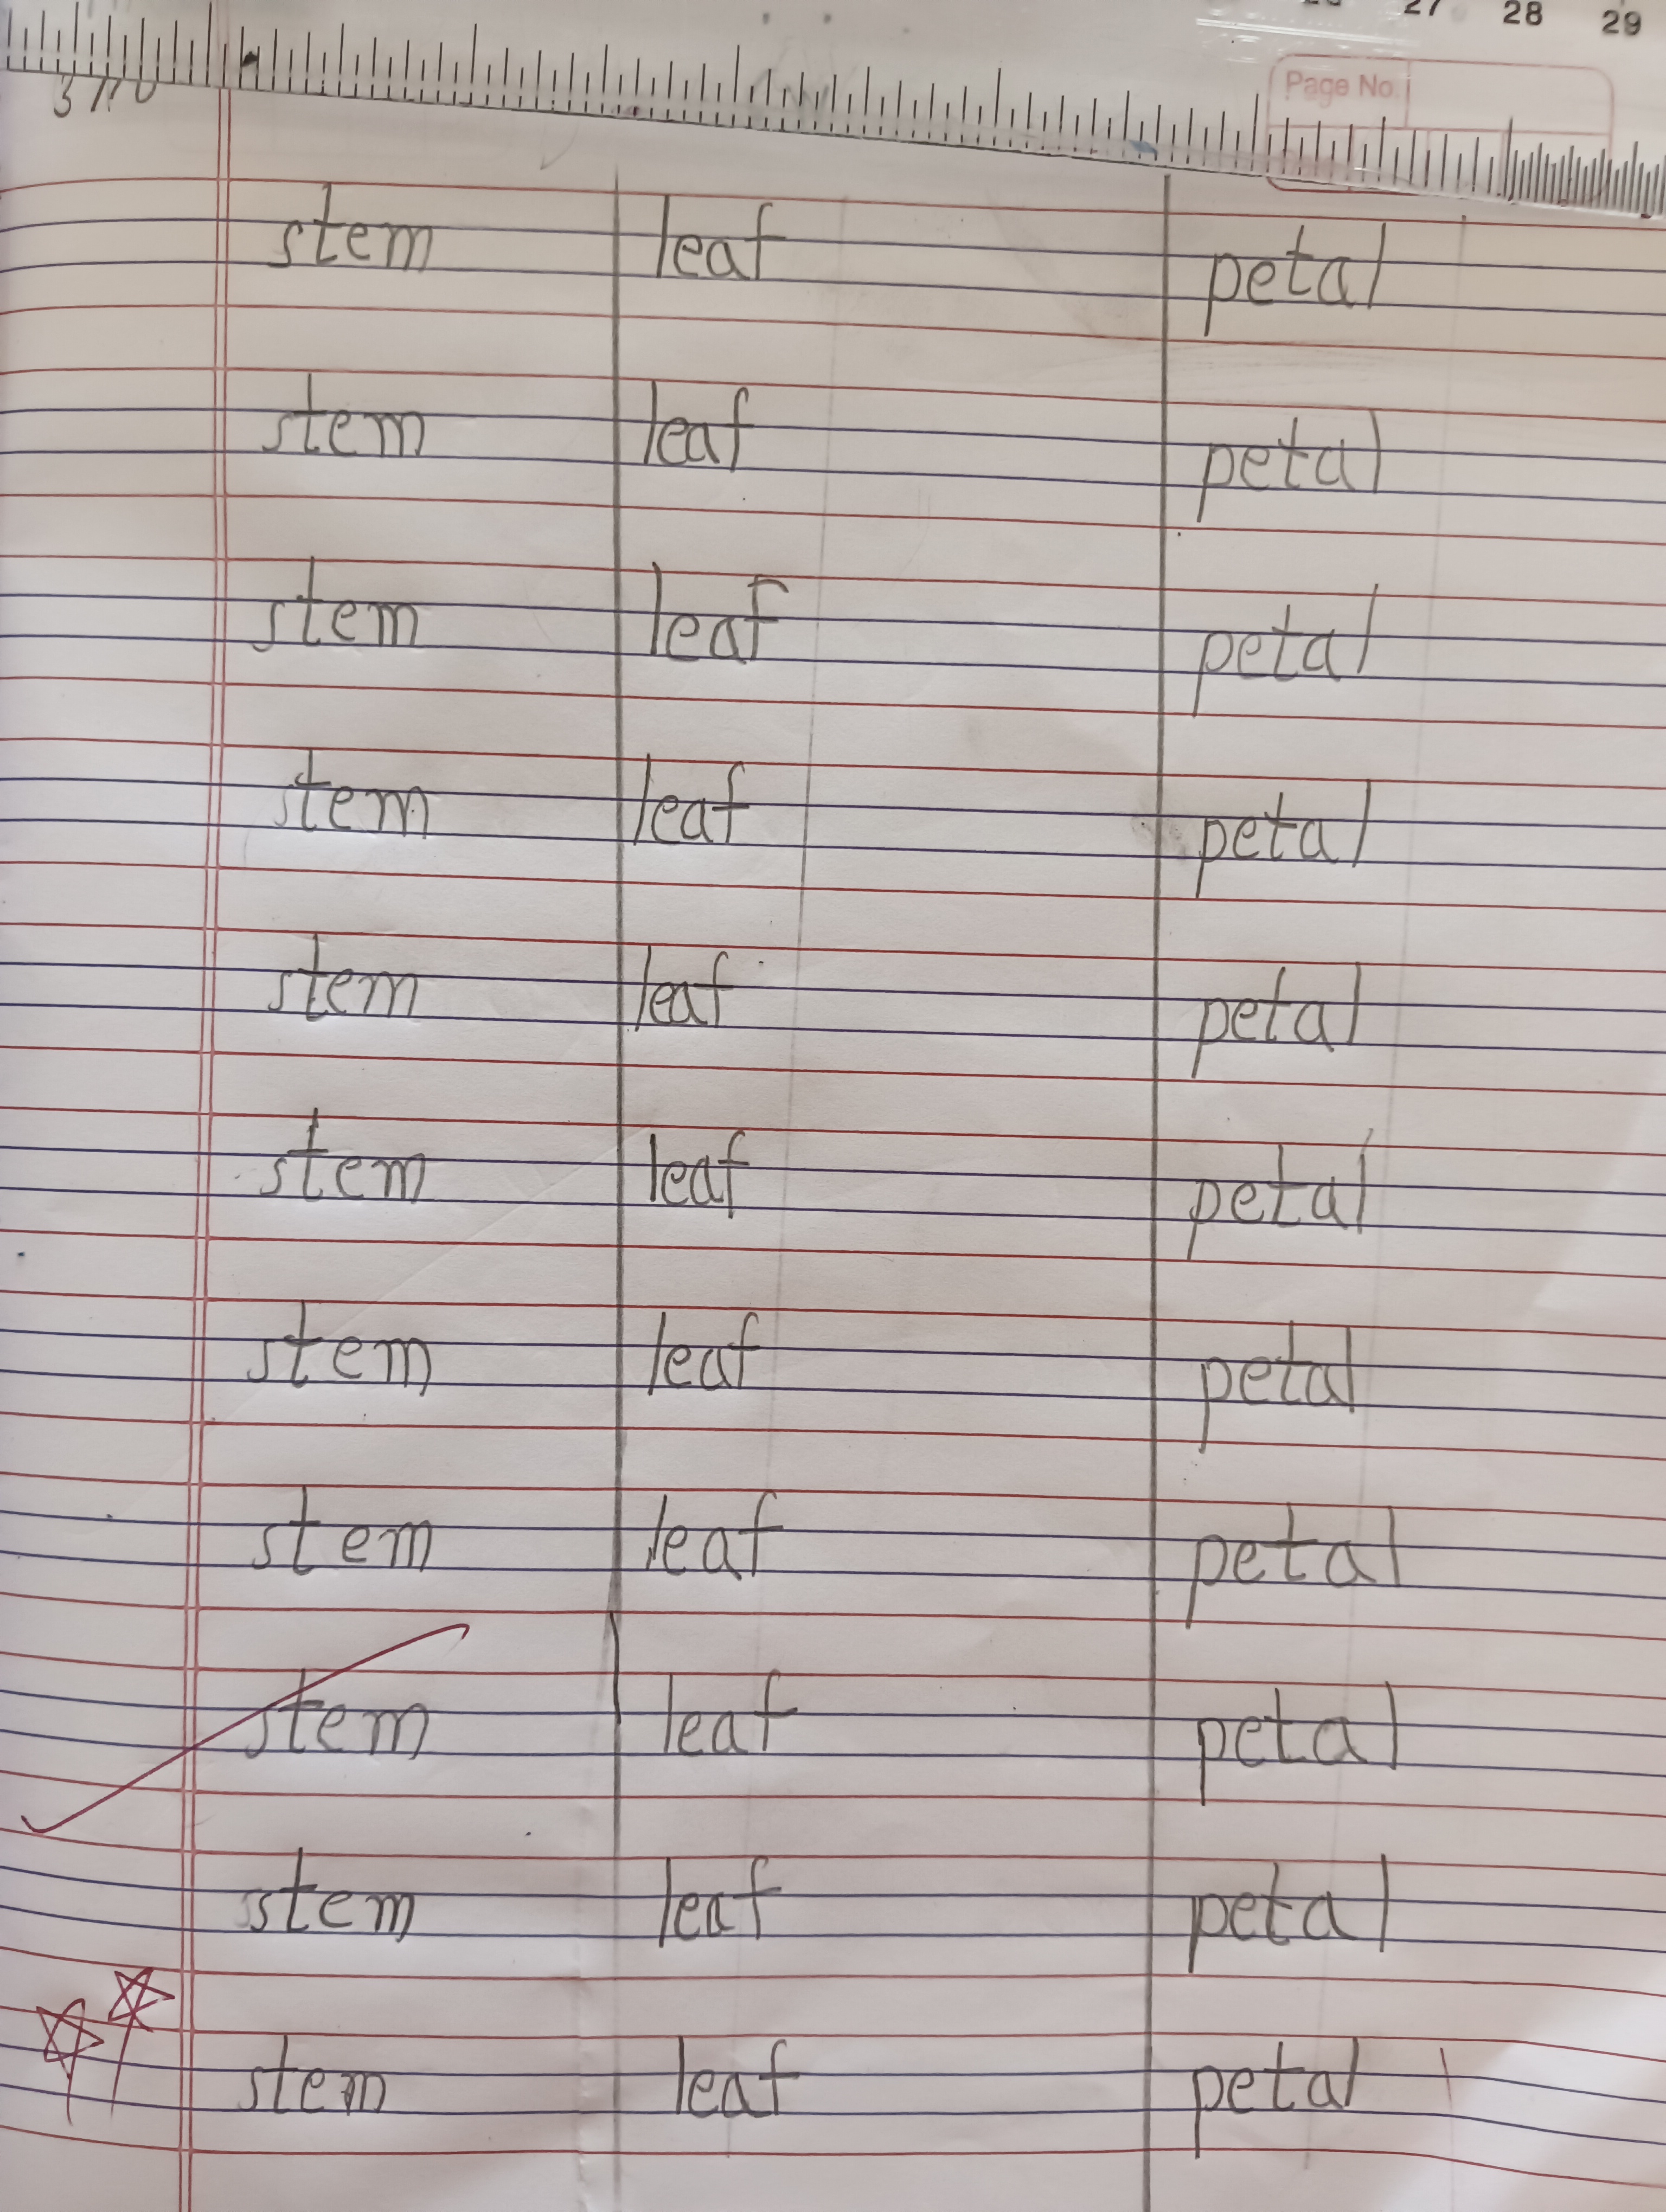 27 28 29
Page No.
stem leaf petal
stem leaf petal
stem leaf petal
stem leaf petal
stem leaf petal
stem leaf petal
stem leaf petal
stem leaf petal
stem leaf petal
stem leaf petal
stem leaf petal